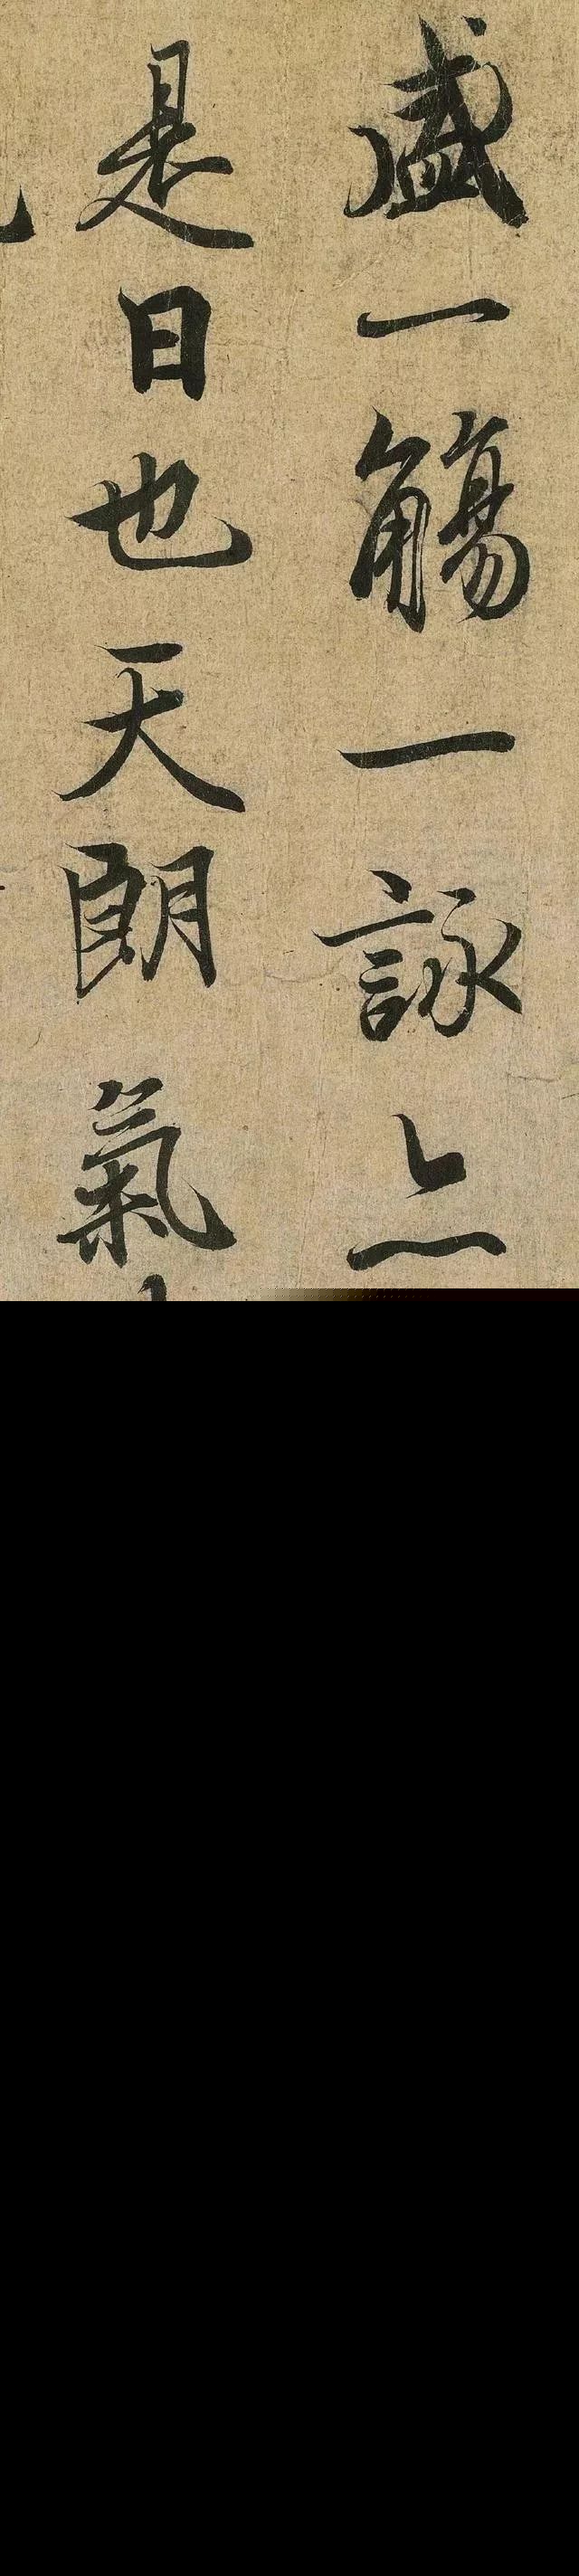 盛一觴一詠亦
是日也天朗氣